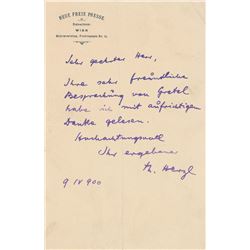 NEUE FREIE PRESSE
WIEN
Sehr geehrter Herr,
Ihre sehr freundliche
Besprechung von Gretel
habe ich mit aufrichtigem
Danke gelesen.
Hochachtungsvoll
Ihr ergebener
Th. Herzl
9 IV 900